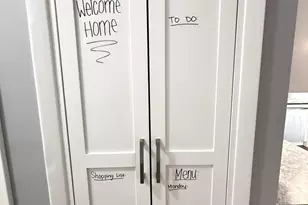 Welcome
Home
TO DO
Shopping List
Menu
Monday